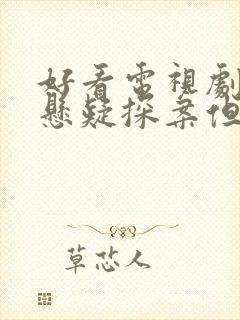 好看電視劇
懸疑探案但
草忿人